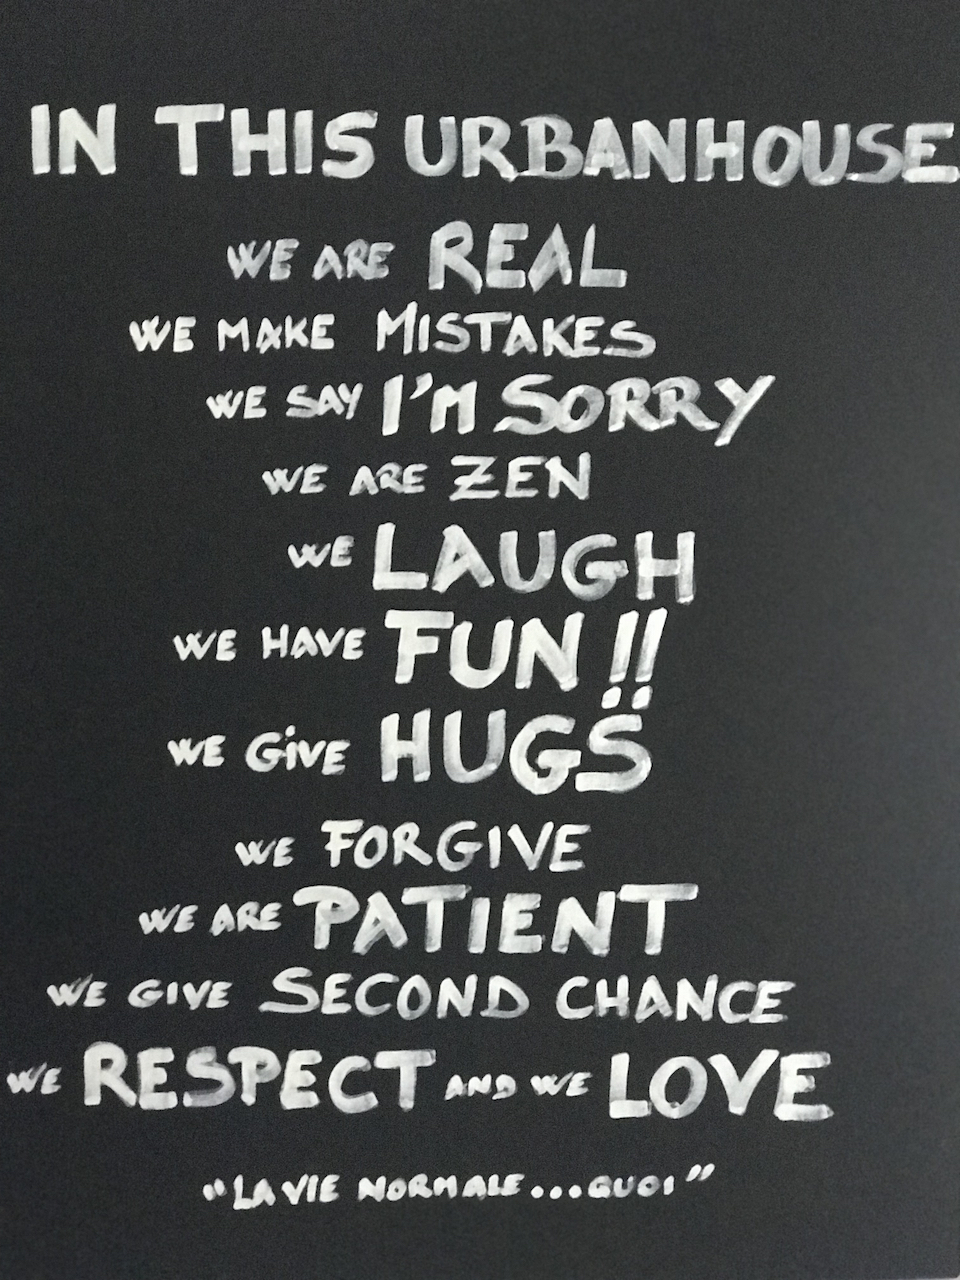 IN THIS URBANHOUSE
WE ARE REAL
WE MAKE MISTAKES
WE SAY I'M SORRY
WE ARE ZEN
WE LAUGH
WE HAVE FUN !!
WE GiVE HUGS
WE FORGIVE
WE ARE PATIENT
WE GIVE SECOND CHANCE
WE RESPECT AND WE LOVE
"LA VIE NORMALE...QUOI"